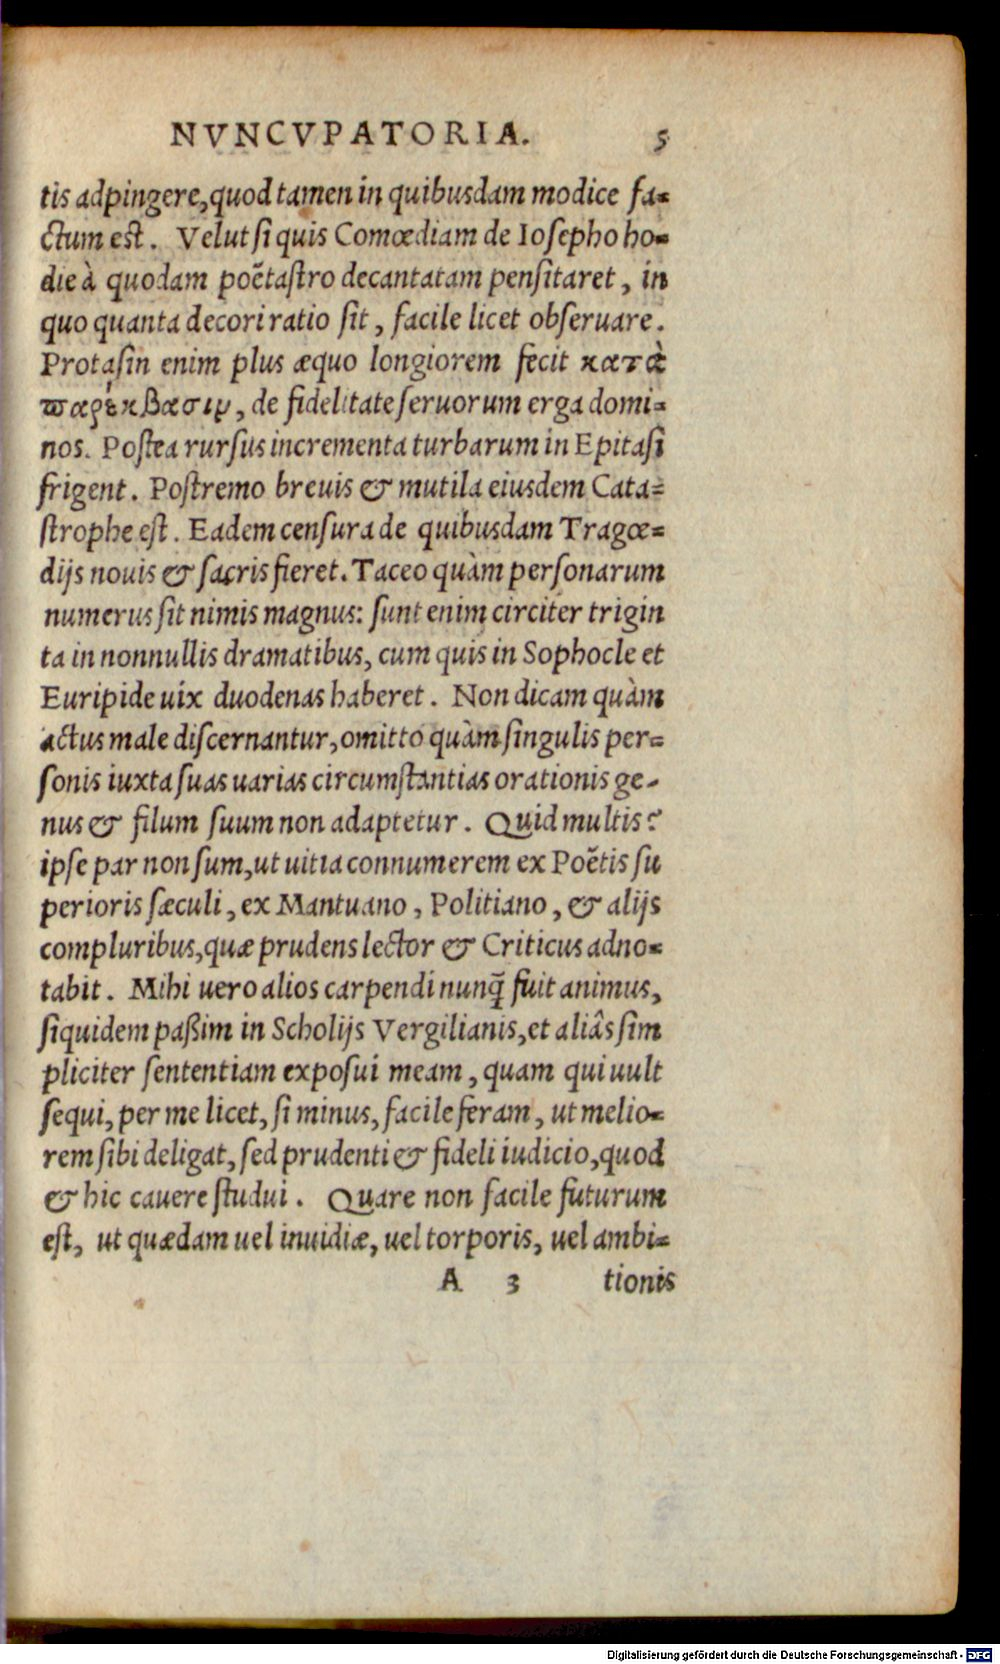 NVNCVPATORIA. 5
tis adpingere, quod tamen in quibusdam modice fa-
ctum est. Velut si quis Comœdiam de Iosepho ho-
die à quodam poẽtastro decantatam pensitaret, in
quo quanta decori ratio sit, facile licet obseruare.
Protasin enim plus æquo longiorem fecit κατὰ
παρέκβασιν, de fidelitate seruorum erga domi-
nos. Postea rursus incrementa turbarum in Epitasi
frigent. Postremo breuis & mutila eiusdem Cata-
strophe est. Eadem censura de quibusdam Tragœ-
dijs nouis & sacris fieret. Taceo quàm personarum
numerus sit nimis magnus: sunt enim circiter trigin
ta in nonnullis dramatibus, cum quis in Sophocle et
Euripide uix duodenas haberet. Non dicam quàm
actus male discernantur, omitto quàm singulis per-
sonis iuxta suas uarias circumstantias orationis ge-
nus & filum suum non adaptetur. Quid multis?
ipse par non sum, ut uitia connumerem ex Poẽtis su
perioris sæculi, ex Mantuano, Politiano, & alijs
compluribus, quæ prudens lector & Criticus adno-
tabit. Mihi uero alios carpendi nunq̃ fuit animus,
siquidem paßim in Scholijs Vergilianis, et aliâs sim
pliciter sententiam exposui meam, quam qui uult
sequi, per me licet, si minus, facile feram, ut melio-
rem sibi deligat, sed prudenti & fideli iudicio, quod
& hic cauere studui. Quare non facile futurum
est, ut quædam uel inuidiæ, uel torporis, uel ambi-
A 3 tionis
Digitalisierung gefördert durch die Deutsche Forschungsgemeinschaft - DFG